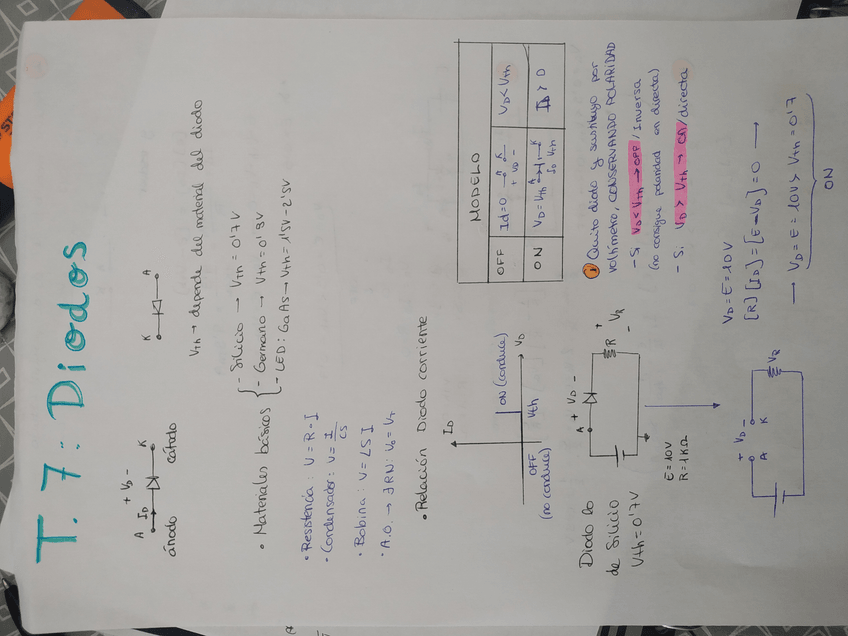 T. 7 : Diodos
A I_D + V_D - K
ánodo cátodo
K A
V_th → depende del material del diodo
• Materiales básicos
- Silicio → Vth = 0'7 V
- Germano → Vth = 0'3V
- LED: GaAs → Vth = 1'5V - 2'5V
• Resistencia : V = R · I
• Condensador : V = I/CS
• Bobina : V = LSI
• A.O. → dRN:
• Relación Diodo corriente
I_D
ON (conduce)
V_D
Vth
OFF
(no conduce)
MODELO
OFF Id=0 A K + V_D - V_D < Vth
ON V_D = Vth A K I_D Vth I_D > 0
Diodo
de Silicio
Vth = 0'7V
A + V_D -
R + V_R -
E = 10V
R = 1KΩ
① Quito diodo y sustituyo por
voltímetro, CONSERVANDO POLARIDAD
- Si V_D < Vth → OFF / Inversa
(no consigue polaridad en directa)
- Si V_D > Vth → ON/directa
+ V_D -
A K
V_R
V_D = E = 10V
[R] [I_D] = [E - V_D] = 0 →
→ V_D = E = 10V > Vth = 0'7
ON